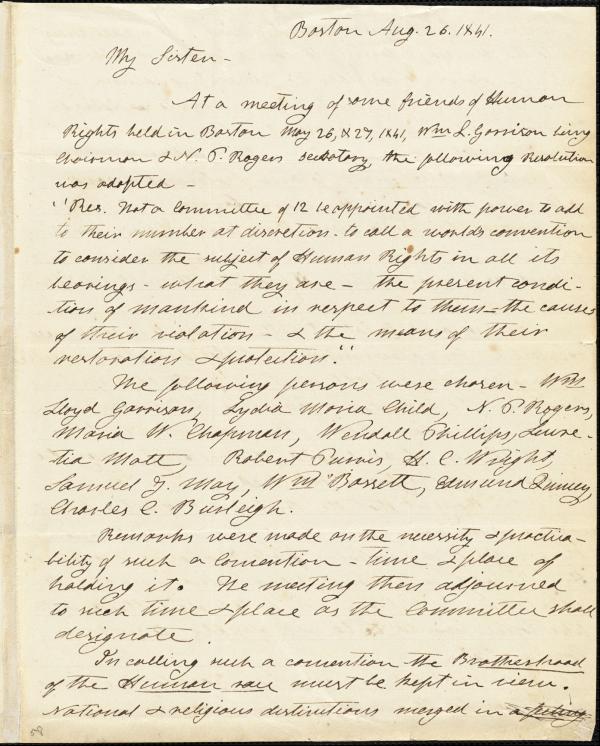 Boston Aug. 26. 1841.
My Sister -
At a meeting of some friends of Human
Rights held in Boston May 26, & 27, 1841, Wm L. Garrison being
Chairman & N. P. Rogers secretary, the following Resolution
was adopted -
"Res. That a Committee of 12 be appointed with power to add
to their number at discretion - to call a world's convention
to consider the subject of Human Rights in all its
bearings - what they are - the present condi-
tion of mankind in respect to them - the causes
of their violation - & the means of their
restoration & protection."
The following persons were chosen - Wm
Lloyd Garrison, Lydia Maria Child, N. P. Rogers,
Maria W. Chapman, Wendall Phillips, Lucre-
tia Mott, Robert Purvis, H. C. Wright,
Samuel J. May, Wm Bassett, Edmund Quincy,
Charles C. Burleigh.
Remarks were made on the necessity & practica-
bility of such a Convention - time & place of
holding it. The meeting then adjourned
to such time & place as the Committee shall
designate.
In calling such a convention the Brotherhood
of the Human race must be kept in view.
National & religious distinctions merged in a
58